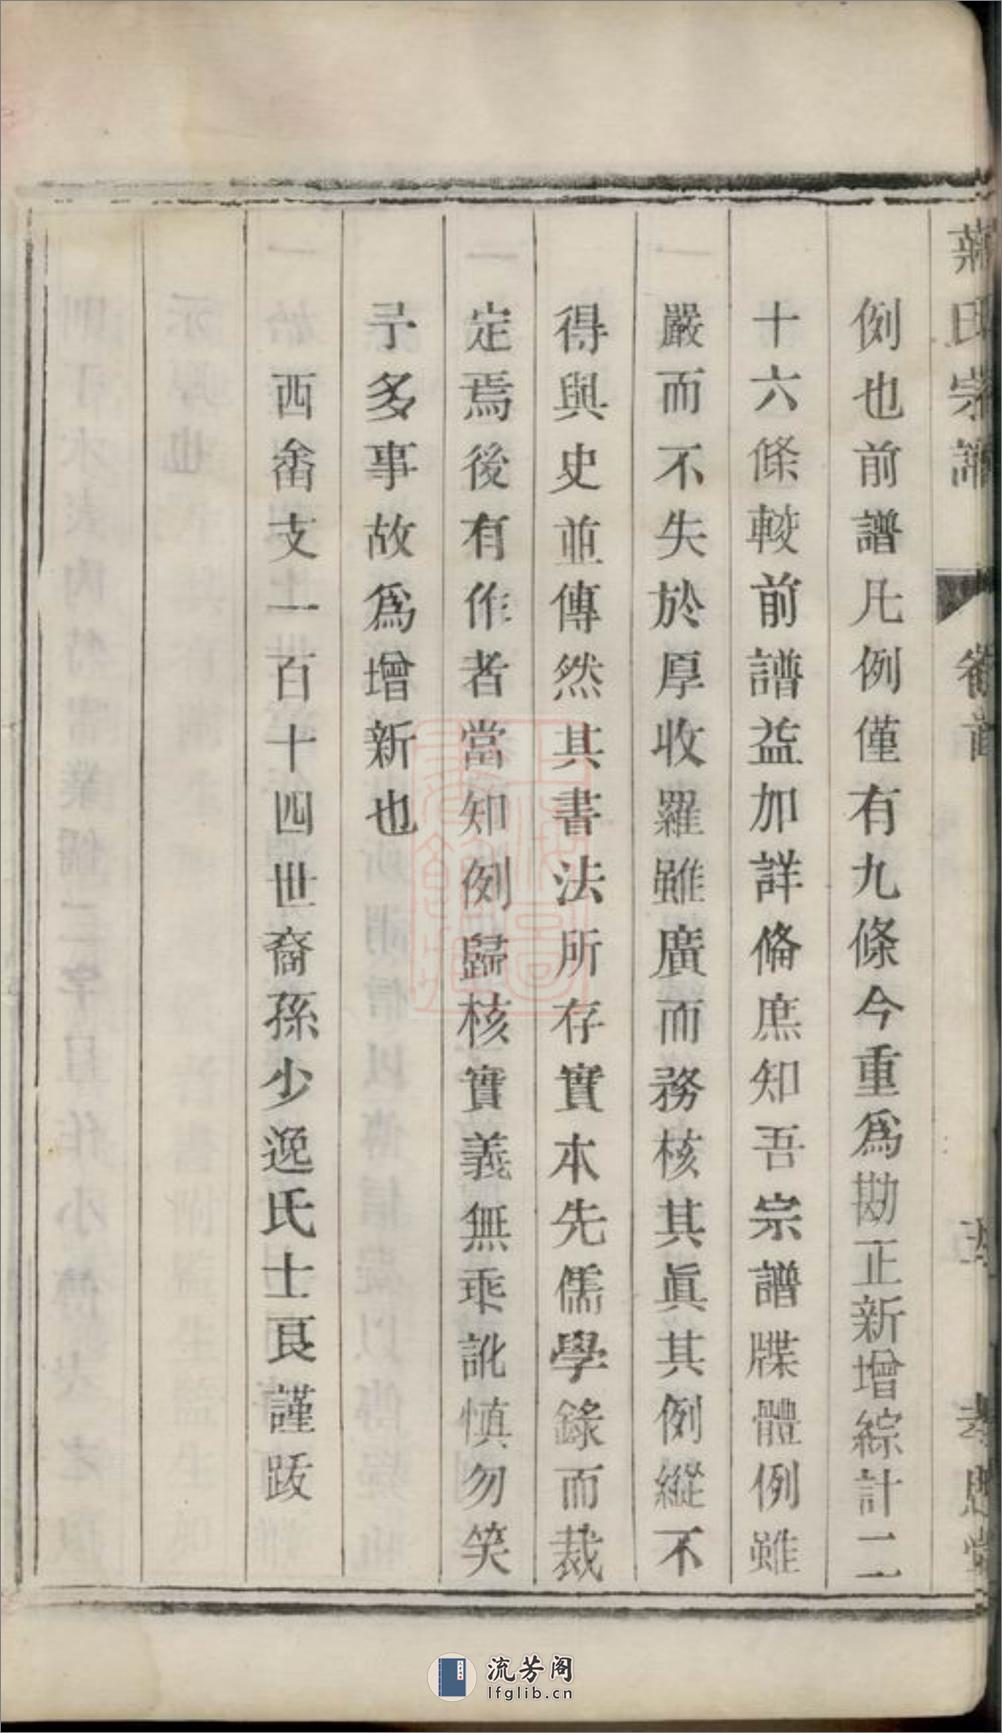 氏宗譜 卷首
例也前譜凡例僅有九條今重爲勘正新增綜計二
十六條較前譜益加詳備庶知吾宗譜牒體例雖
嚴而不失於厚收羅雖廣而務核其眞其例縱不
得與史並傳然其書法所存實本先儒學錄而裁
定焉後有作者當知例歸核實義無乖訛慎勿笑
予多事故爲增新也
西畬支一百十四世裔孫少逸氏士良謹跋
流芳阁
lfglib.cn